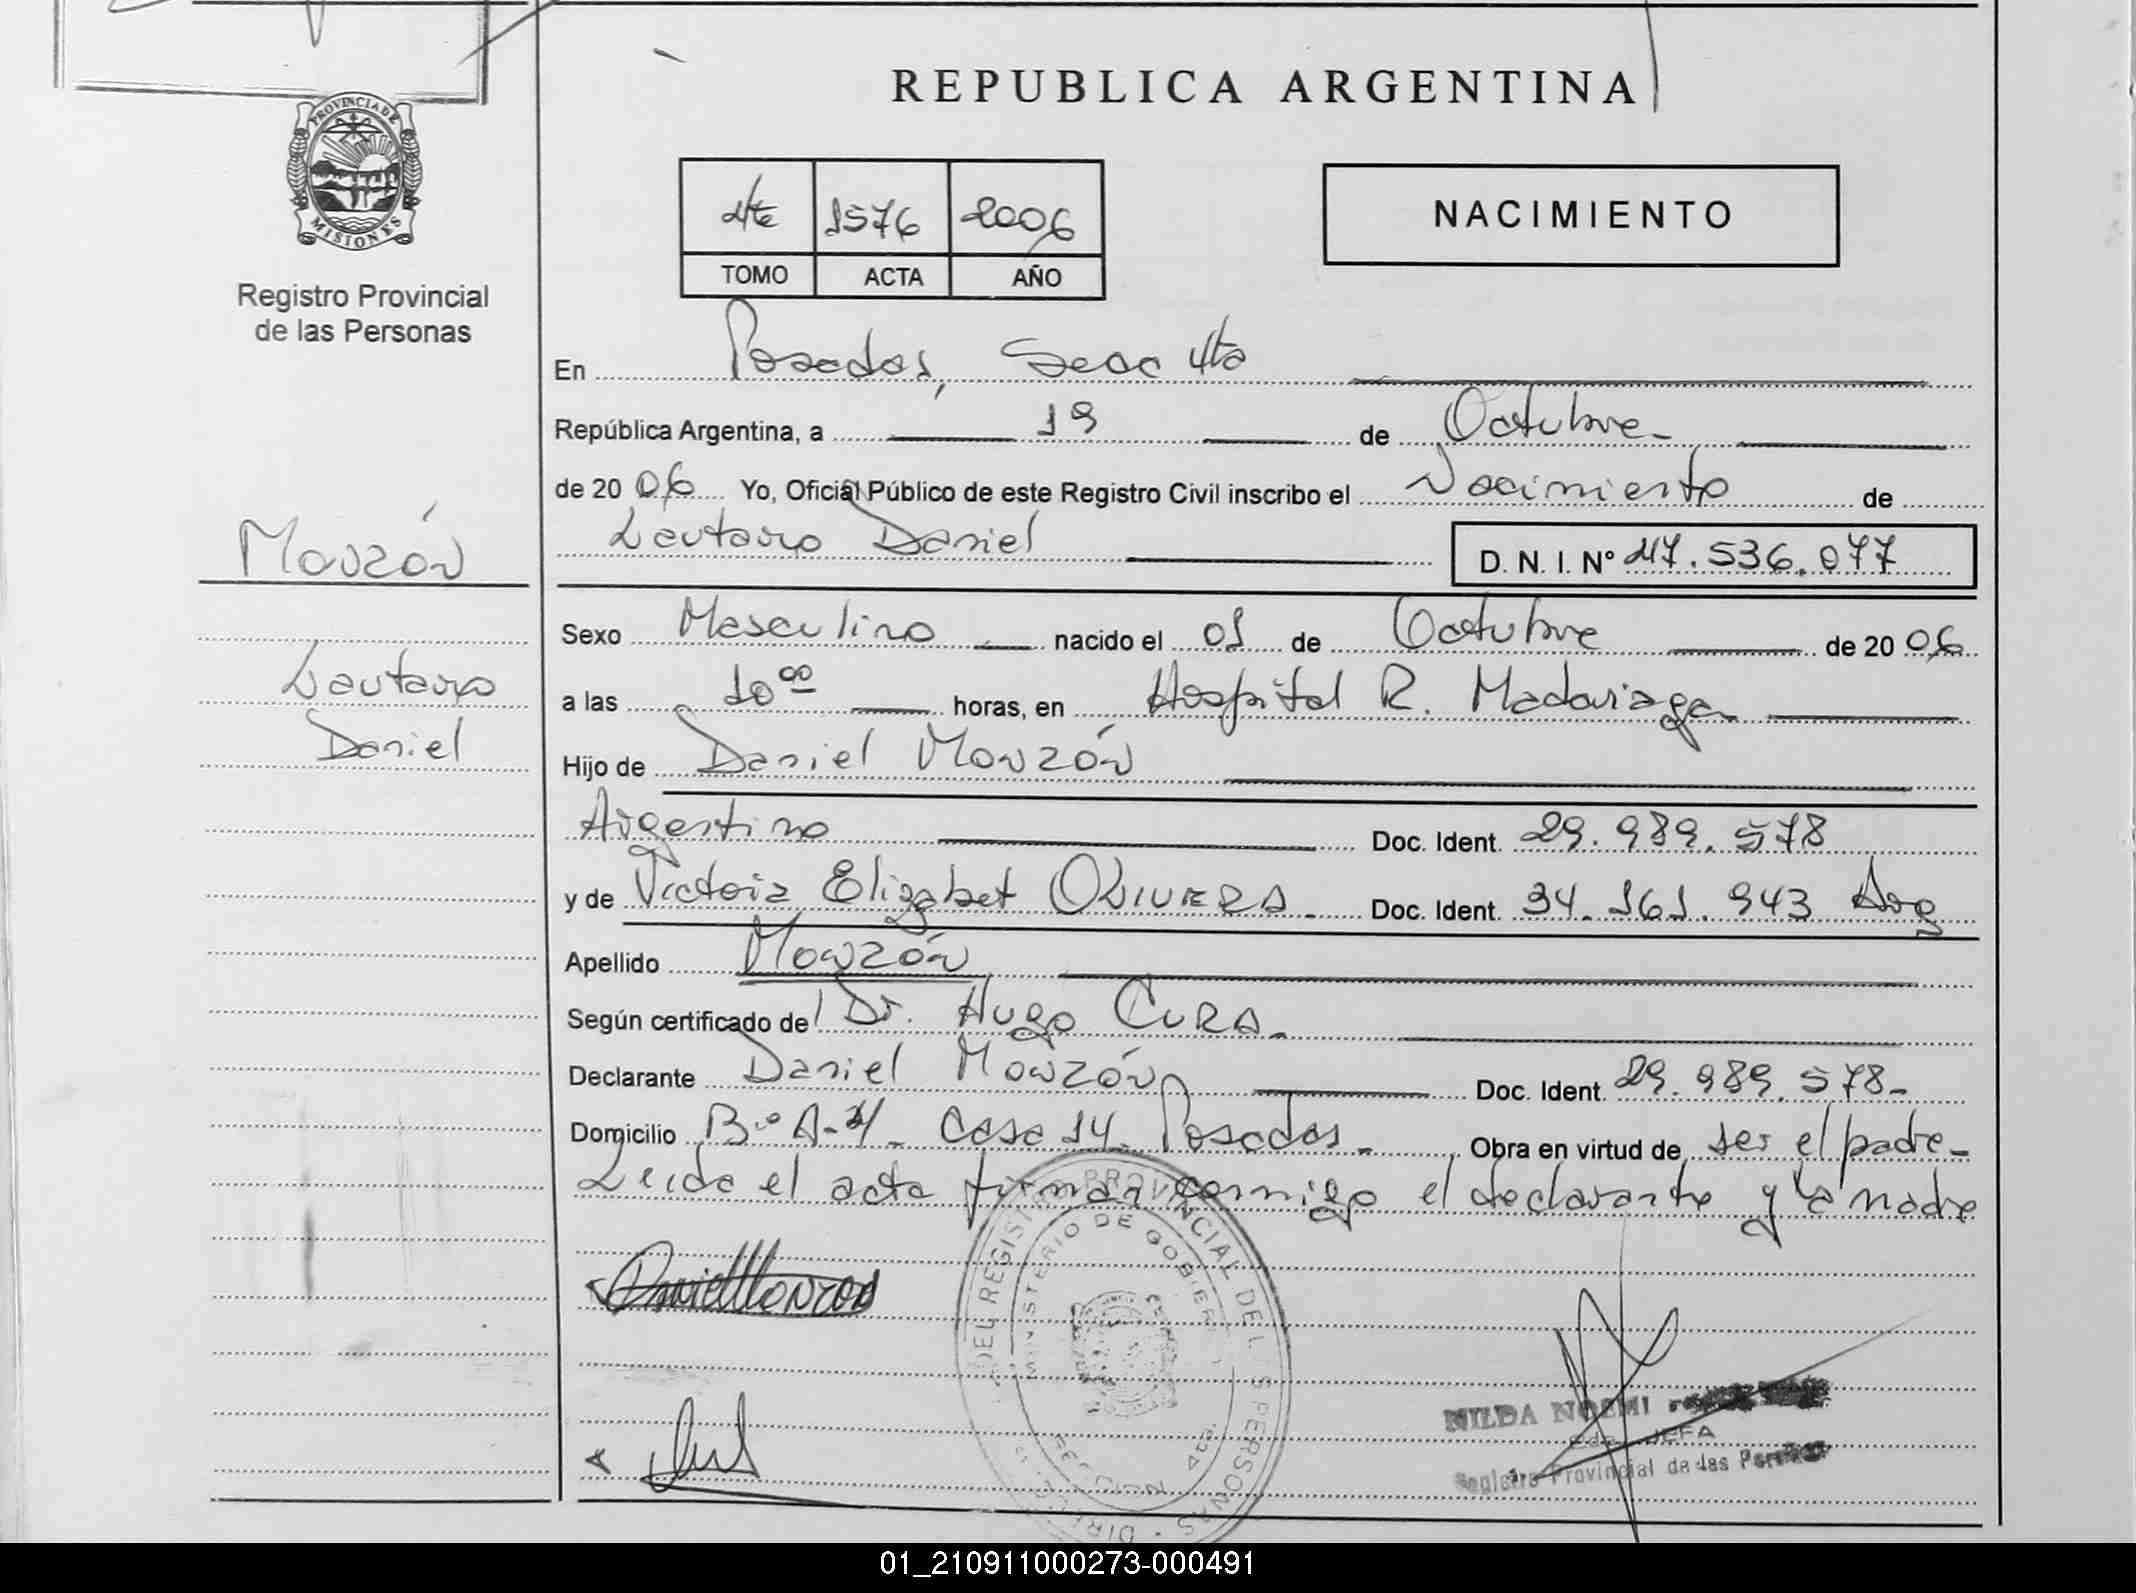 REPUBLICA ARGENTINA
PROVINCIA DE MISIONES
Registro Provincial
de las Personas
4ta 1576 2006
TOMO ACTA AÑO
NACIMIENTO
En Posadas, Secc 4ta
República Argentina, a 19 de Octubre
de 2006 Yo, Oficial Público de este Registro Civil inscribo el Nacimiento de
Lautaro Daniel D. N. I. Nº 47.536.077
Monzón
Lautaro
Daniel
Sexo Masculino nacido el 01 de Octubre de 2006
a las 10 00 horas, en Hospital R. Madariaga
Hijo de Daniel Monzón
Argentino Doc. Ident. 29.989.578
y de Victoria Elizabet OLIVERA Doc. Ident. 34.161.943 Arg
Apellido Monzón
Según certificado de Dr. Hugo CURA
Declarante Daniel Monzón Doc. Ident. 29.989.578-
Domicilio Bº A-4 - Casa 14 - Posadas - Obra en virtud de ser el padre-
Leída el acta firman conmigo el declarante y la madre
Daniel Monzon
REGISTRO PROVINCIAL DE LAS PERSONAS
MINISTERIO DE GOBIERNO
NILDA NOEMI
JEFA
Registro Provincial de las Personas
01_210911000273-000491